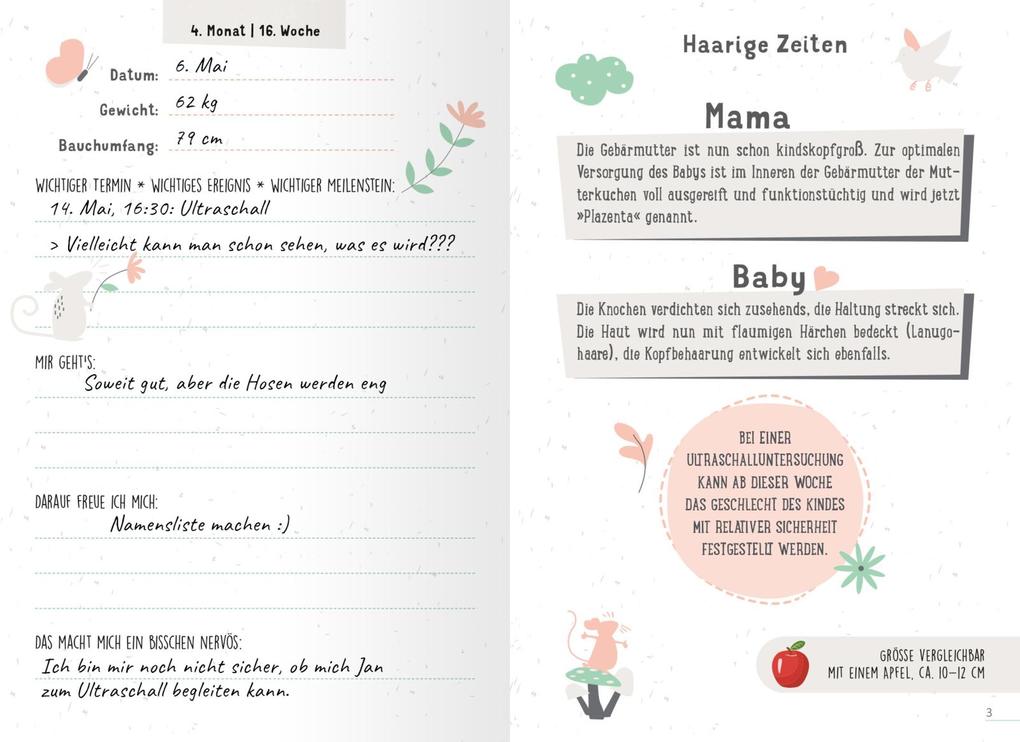 4. Monat | 16. Woche
Datum: 6. Mai
Gewicht: 62 kg
Bauchumfang: 79 cm
WICHTIGER TERMIN * WICHTIGES EREIGNIS * WICHTIGER MEILENSTEIN:
14. Mai, 16:30: Ultraschall
> Vielleicht kann man schon sehen, was es wird???
MIR GEHT'S:
Soweit gut, aber die Hosen werden eng
DARAUF FREUE ICH MICH:
Namensliste machen :)
DAS MACHT MICH EIN BISSCHEN NERVÖS:
Ich bin mir noch nicht sicher, ob mich Jan
zum Ultraschall begleiten kann.
Haarige Zeiten
Mama
Die Gebärmutter ist nun schon kindskopfgroß. Zur optimalen
Versorgung des Babys ist im Inneren der Gebärmutter der Mut-
terkuchen voll ausgereift und funktionstüchtig und wird jetzt
»Plazenta« genannt.
Baby
Die Knochen verdichten sich zusehends, die Haltung streckt sich.
Die Haut wird nun mit flaumigen Härchen bedeckt (Lanugo-
haare), die Kopfbehaarung entwickelt sich ebenfalls.
BEI EINER
ULTRASCHALLUNTERSUCHUNG
KANN AB DIESER WOCHE
DAS GESCHLECHT DES KINDES
MIT RELATIVER SICHERHEIT
FESTGESTELLT WERDEN.
GRÖSSE VERGLEICHBAR
MIT EINEM APFEL, CA. 10–12 CM
3